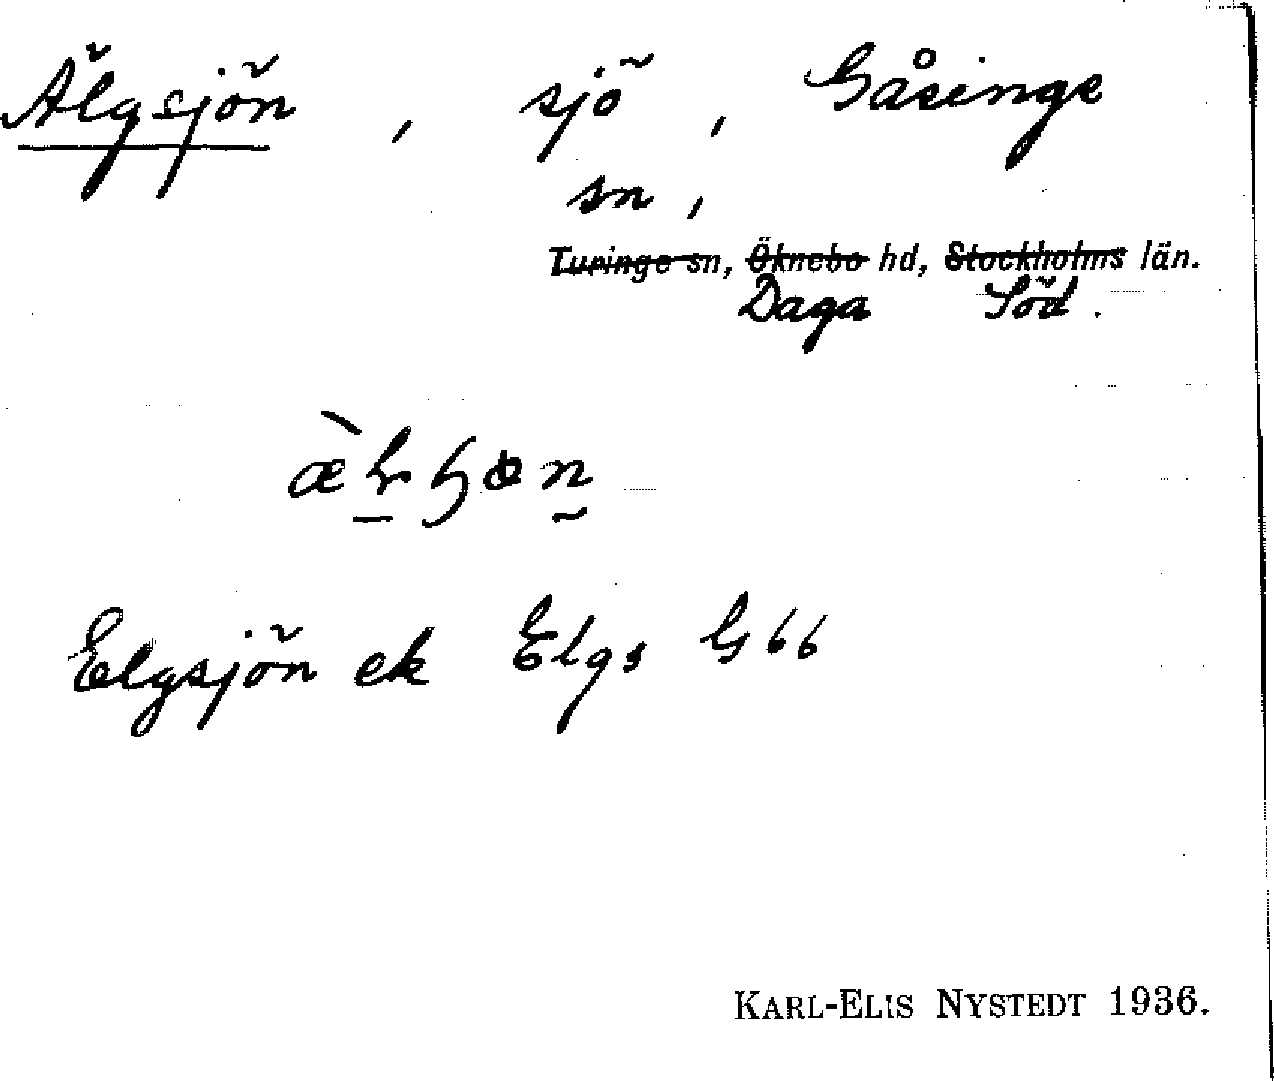 Älgsjön, sjö, Gåsinge
sn,
Turinge sn, Öknebo hd, Stockholms län.
Daga Söd.
Elgsjön ek Elgs G 66
KARL-ELIS NYSTEDT 1936.